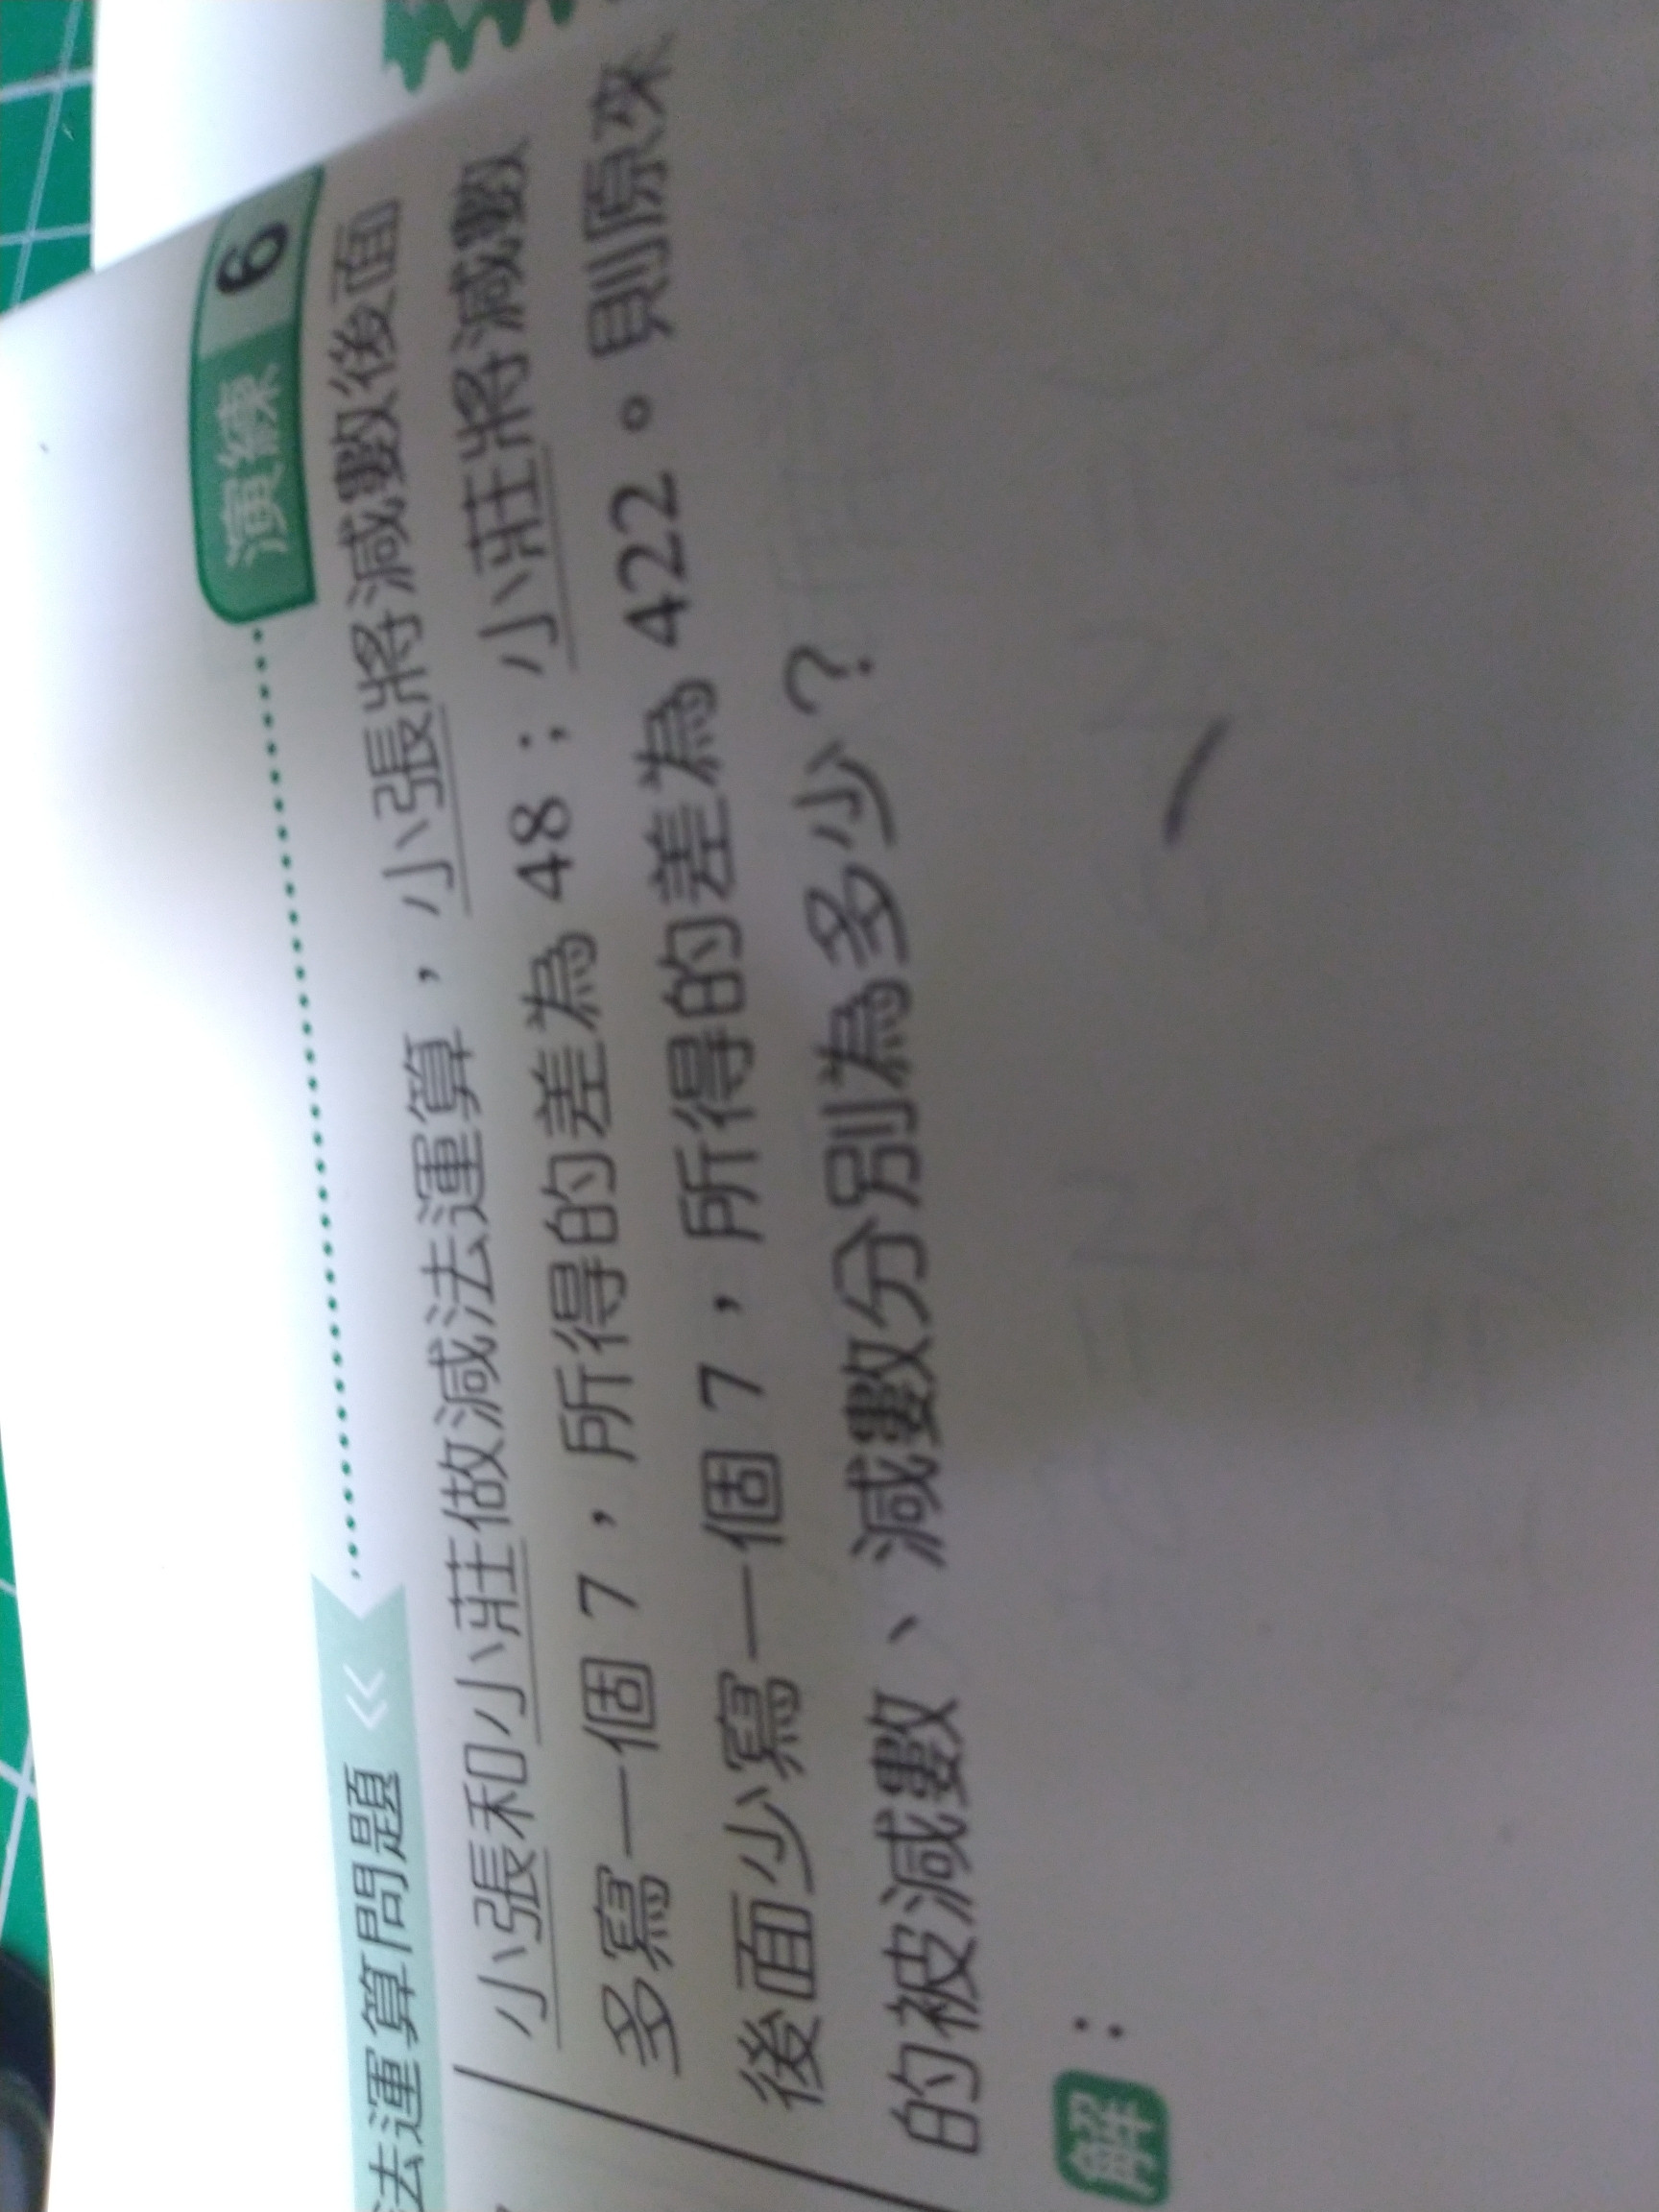 法運算問題
演練 6
小張和小莊做減法運算，小張將減數後面
多寫一個 7，所得的差為 48；小莊將減數
後面少寫一個 7，所得的差為 422。則原來
的被減數、減數分別為多少？
解：